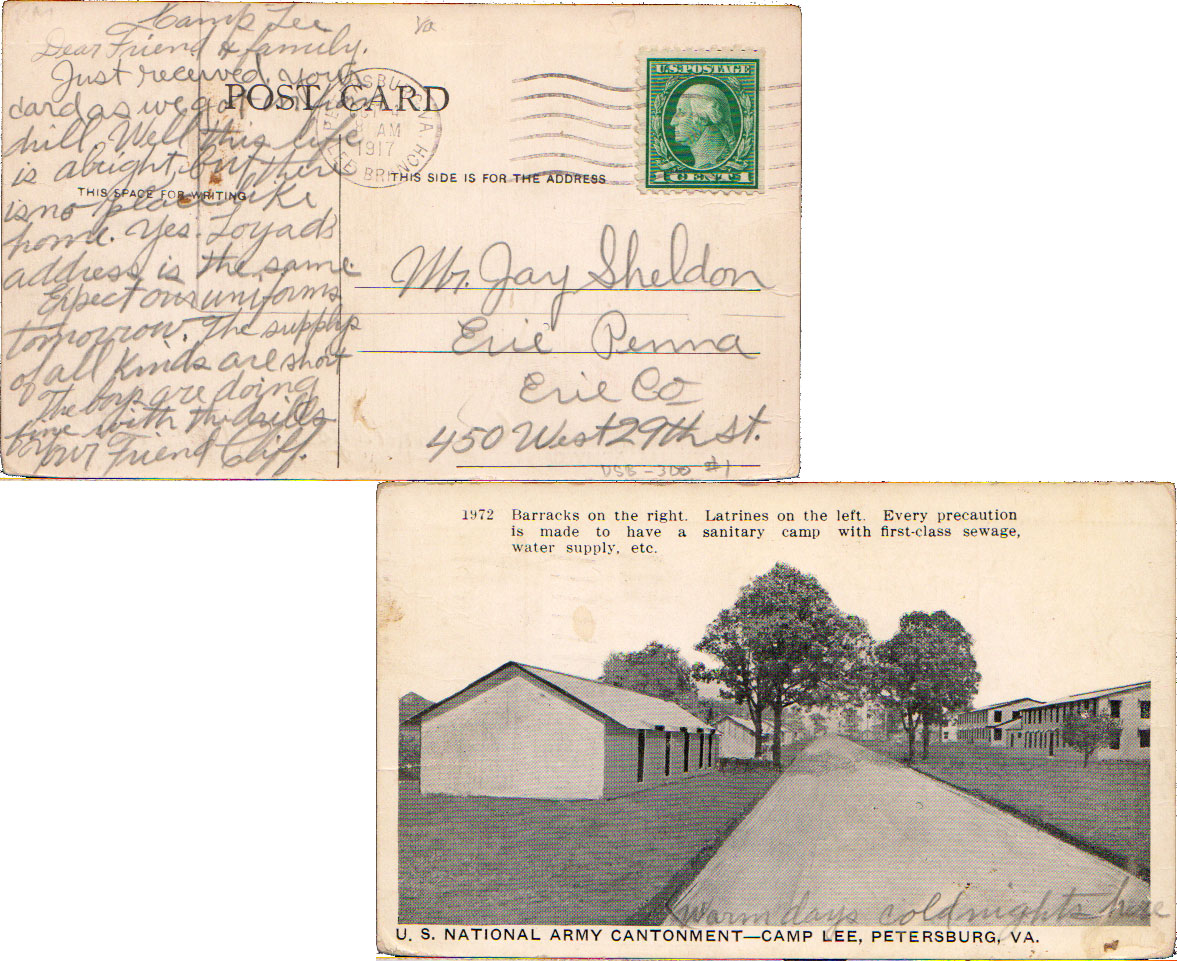 Camp Lee
Dear Friend & family.
Just received your
card as we got in from
drill. Well this life
is alright, but there
is no place like
home. Yes. Loyad's
address is the same
Expect our uniforms
tomorrow. The supplys
of all kinds are short
The boys are doing
fine with the drills
your Friend Cliff.
Va
POST CARD
THIS SPACE FOR WRITING
THIS SIDE IS FOR THE ADDRESS
PETERSBURG, VA.
8 AM
1917
LEE BRANCH
U.S. POSTAGE
1 CENT 1
Mr. Jay Sheldon
Erie Penna
Erie Co
450 West 29th St.
USB-300 #1
1972 Barracks on the right. Latrines on the left. Every precaution
is made to have a sanitary camp with first-class sewage,
water supply, etc.
warm days cold nights here
U. S. NATIONAL ARMY CANTONMENT—CAMP LEE, PETERSBURG, VA.